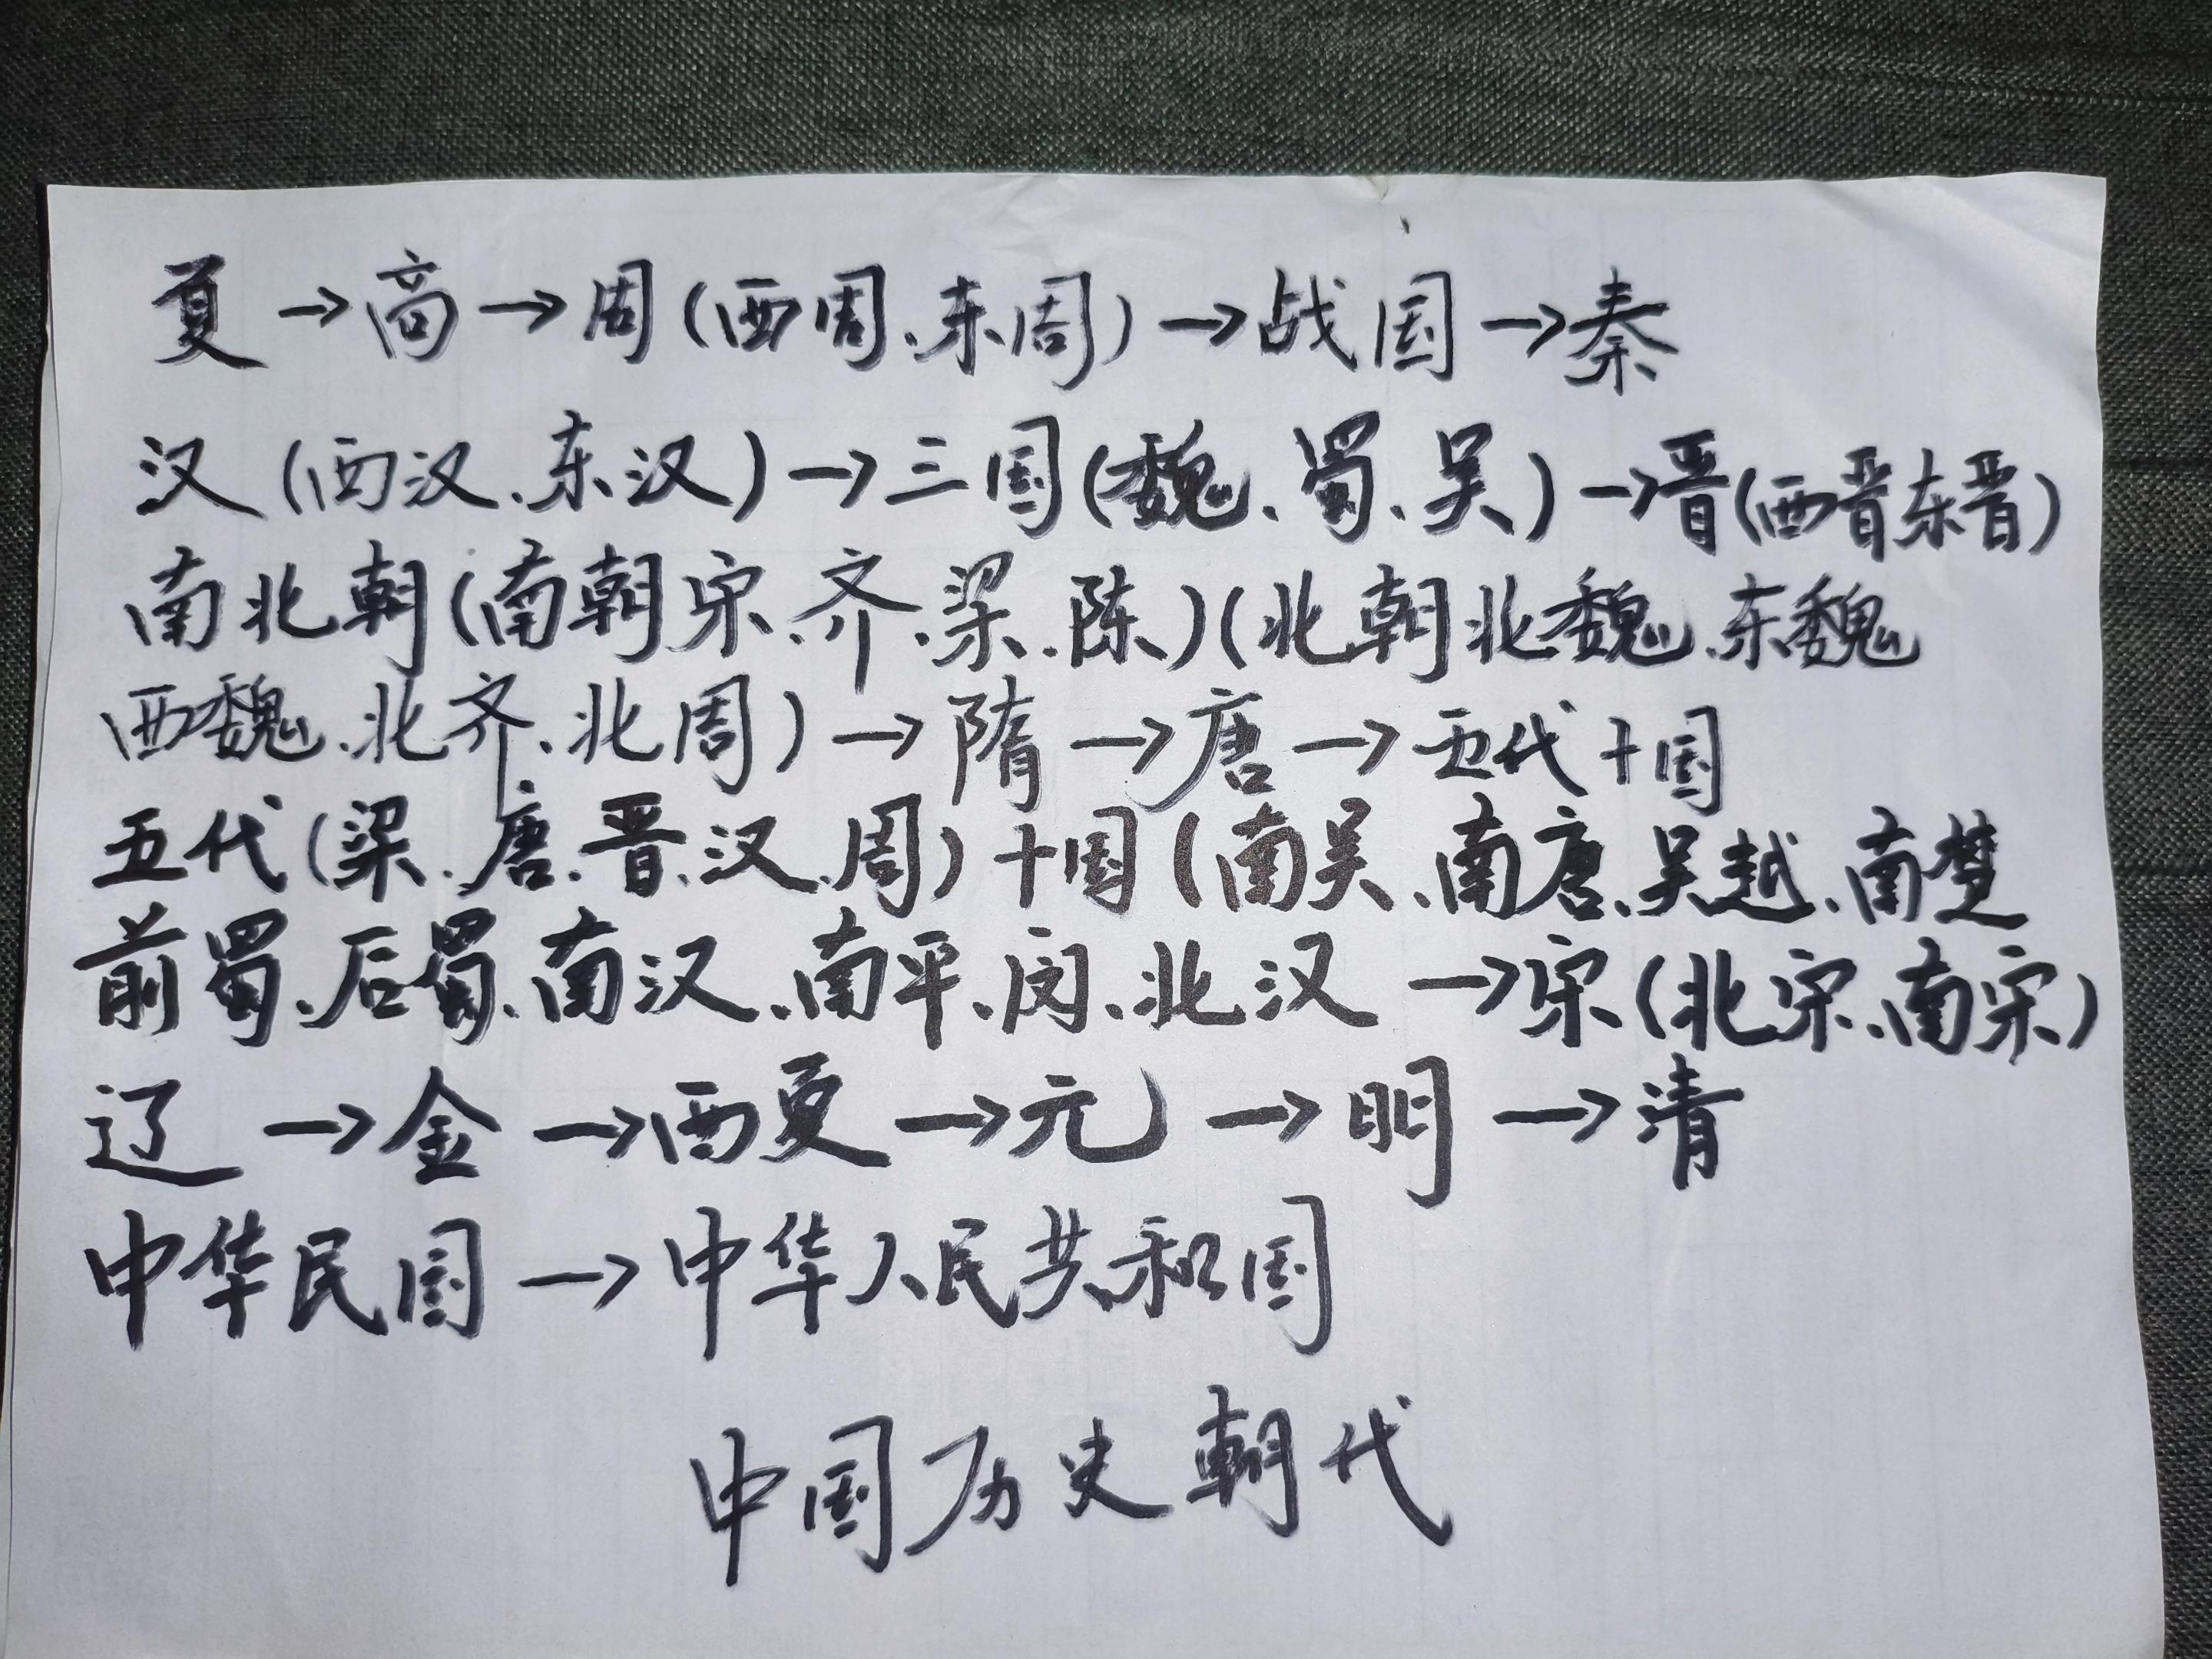 夏→商→周(西周、东周)→战国→秦
汉(西汉、东汉)→三国(魏、蜀、吴)→晋(西晋东晋)
南北朝(南朝宋、齐、梁、陈)(北朝北魏、东魏
西魏、北齐、北周)→隋→唐→五代十国
五代(梁、唐、晋、汉、周)十国(南吴、南唐、吴越、南楚
前蜀、后蜀、南汉、南平、闵、北汉→宋(北宋、南宋)
辽→金→西夏→元→明→清
中华民国→中华人民共和国
中国历史朝代